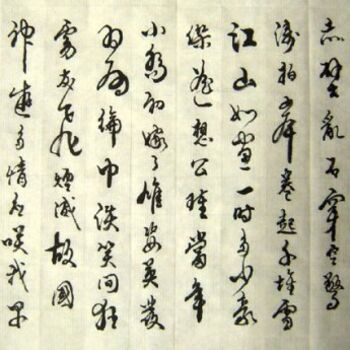 赤壁亂石穿空驚
濤拍岸卷起千堆雪
江山如畫一时多少豪
傑遥想公瑾當年
小喬初嫁了雄姿英發
羽扇綸巾談笑间狂
虜灰飞煙滅故國
神遊多情应笑我早